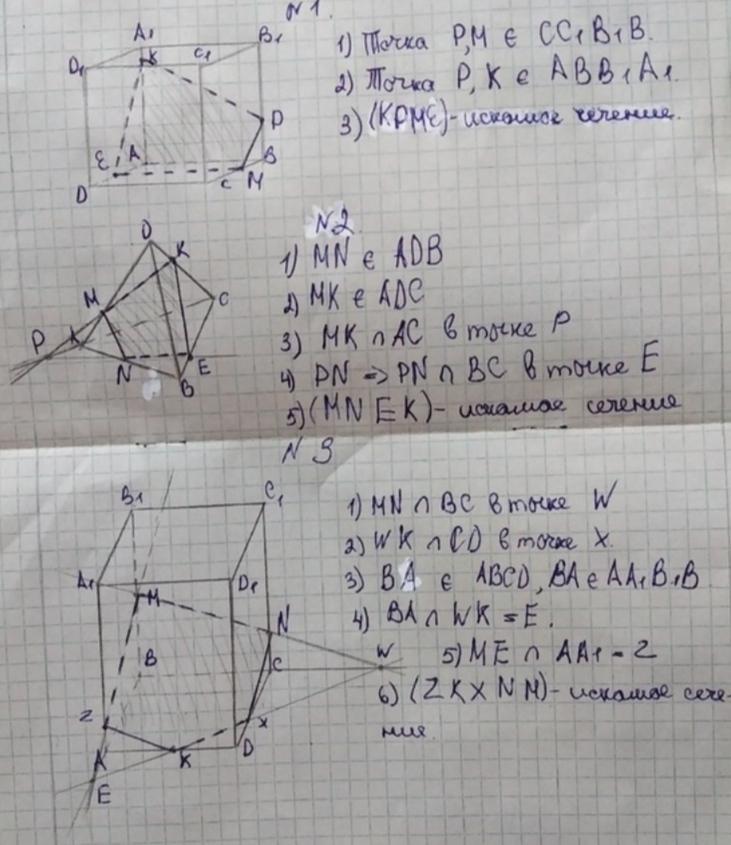 N 1.
1) Точка P,M ∈ CC₁B₁B.
2) Точка P, K ∈ ABB₁A₁.
3) (KPME) - искомое сечение.
A₁
B₁
D₁
K
C₁
P
E
A
B
D
C
M
N2
1) MN ∈ ADB
2) MK ∈ ADC
3) MK ∩ AC в точке P
4) PN => PN ∩ BC в точке E
5) (MNEK) - искомое сечение
D
K
M
C
P
A
N
E
B
N 3
1) MN ∩ BC в точке W
2) WK ∩ CD в точке X.
3) BA ∈ ABCD, BA ∈ AA₁B₁B
4) BA ∩ WK = E.
5) ME ∩ AA₁ - Z
6) (ZKXNM) - искомое сече-
ние.
B₁
C₁
A₁
M
D₁
N
B
C
W
Z
X
A
K
D
E